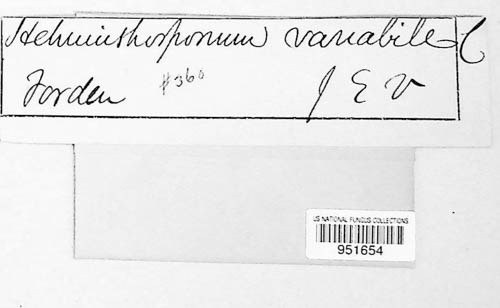 Helminthosporium variabile C
Jorden #360 J E V
US NATIONAL FUNGUS COLLECTIONS
951654